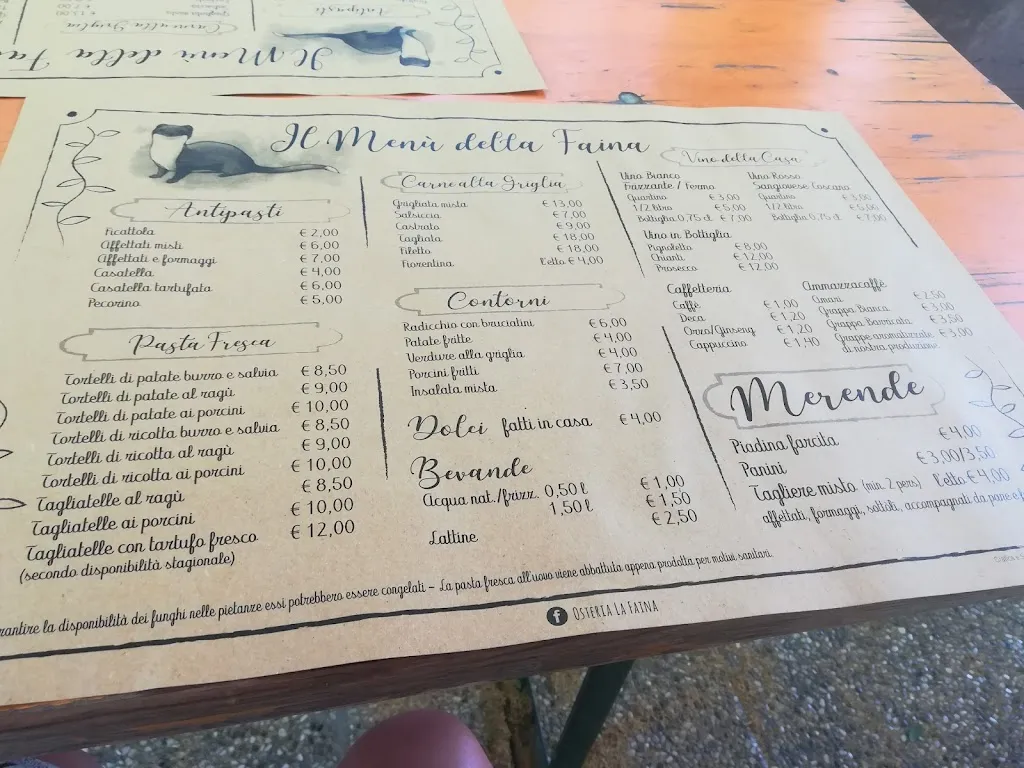 Il Menù della Faina
Antipasti
Ficattola € 2,00
Affettati misti € 6,00
Affettati e formaggi € 7,00
Casatella € 4,00
Casatella tartufata € 6,00
Pecorino € 5,00
Pasta Fresca
Tortelli di patate burro e salvia € 8,50
Tortelli di patate al ragù € 9,00
Tortelli di patate ai porcini € 10,00
Tortelli di ricotta burro e salvia € 8,50
Tortelli di ricotta al ragù € 9,00
Tortelli di ricotta ai porcini € 10,00
Tagliatelle al ragù € 8,50
Tagliatelle ai porcini € 10,00
Tagliatelle con tartufo fresco € 12,00
(secondo disponibilità stagionale)
Carne alla Griglia
Grigliata mista € 13,00
Salsiccia € 7,00
Castrato € 9,00
Tagliata € 18,00
Filetto € 18,00
Fiorentina L'etto € 4,00
Contorni
Radicchio con bruciatini € 6,00
Patate fritte € 4,00
Verdure alla griglia € 4,00
Porcini fritti € 7,00
Insalata mista € 3,50
Dolci fatti in casa € 4,00
Bevande
Acqua nat./frizz. 0,50 l € 1,00
1,50 l € 1,50
Lattine € 2,50
Vino della Casa
Vino Bianco
Frizzante / Fermo
Quartino € 3,00
1/2 litro € 5,00
Bottiglia 0,75 cl. € 7,00
Vino Rosso
Sangiovese Toscano
Quartino € 3,00
1/2 litro € 5,00
Bottiglia 0,75 cl. € 7,00
Vino in Bottiglia
Pignoletto € 8,00
Chianti € 12,00
Prosecco € 12,00
Caffetteria
Caffè € 1,00
Deca € 1,20
Orzo/Ginseng € 1,20
Cappuccino € 1,40
Ammazzacaffè
Amari €2,50
Grappa Bianca € 3,00
Grappa Barricata € 3,50
Grappe aromatizzate € 3,00
di nostra produzione
Merende
Piadina farcita € 4,00
Panini € 3,00/3,50
Tagliere misto (min. 2 pers) L'etto € 4,00
affettati, formaggi, sottoli, accompagnati da pane e
rantire la disponibilità dei funghi nelle pietanze essi potrebbero essere congelati – La pasta fresca all'uovo viene abbattuta appena prodotta per motivi sanitari.
f Osteria La Faina